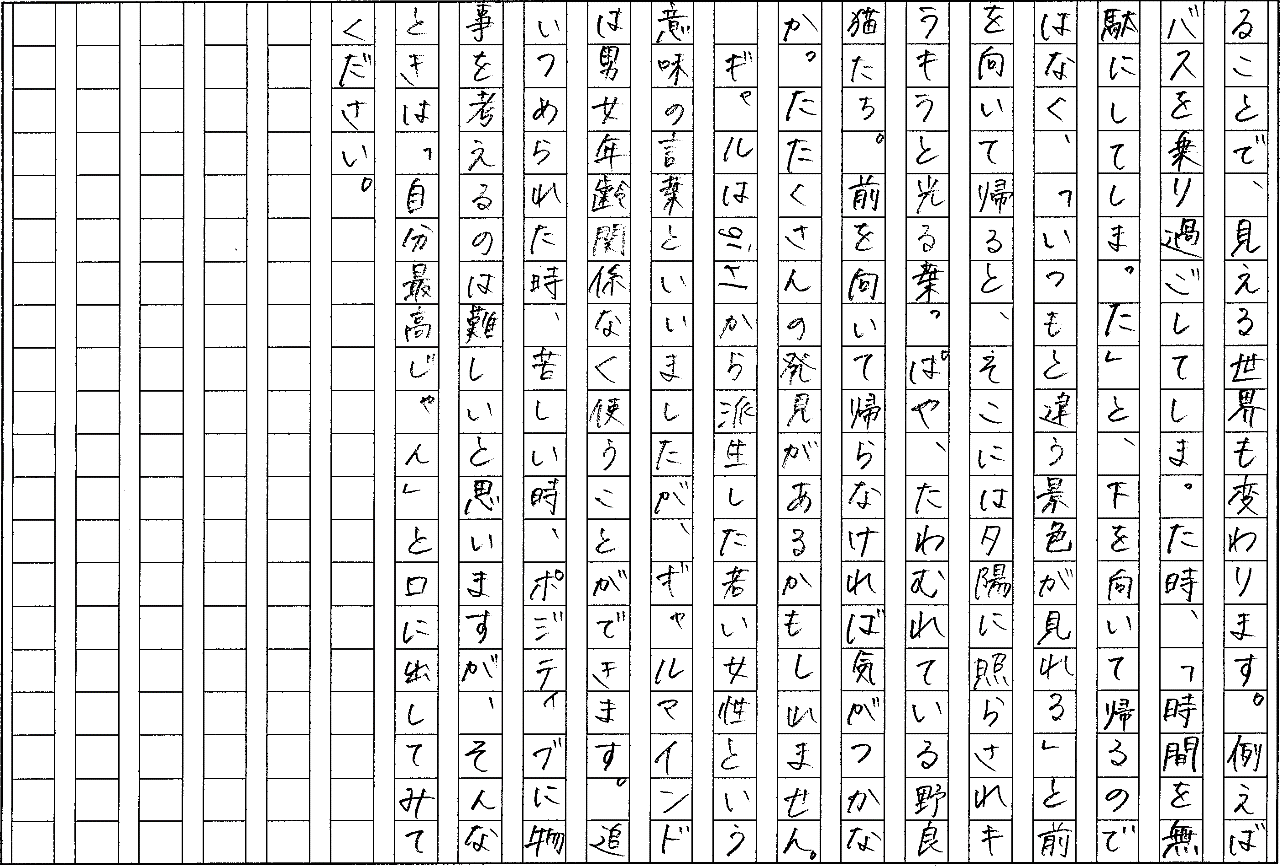 ることで、見える世界も変わります。例えば
バスを乗り過ごしてしまった時、「時間を無
駄にしてしまった」と、下を向いて帰るので
はなく、「いつもと違う景色が見れる」と前
を向いて帰ると、そこには夕陽に照らされキ
ラキラと光る葉っぱや、たわむれている野良
猫たち。前を向いて帰らなければ気がつかな
かったたくさんの発見があるかもしれません。
ギャルはgirlから派生した若い女性という
意味の言葉といいましたが、ギャルマインド
は男女年齢関係なく使うことができます。追
いつめられた時、苦しい時、ポジティブに物
事を考えるのは難しいと思いますが、そんな
ときは「自分最高じゃん」と口に出してみて
ください。